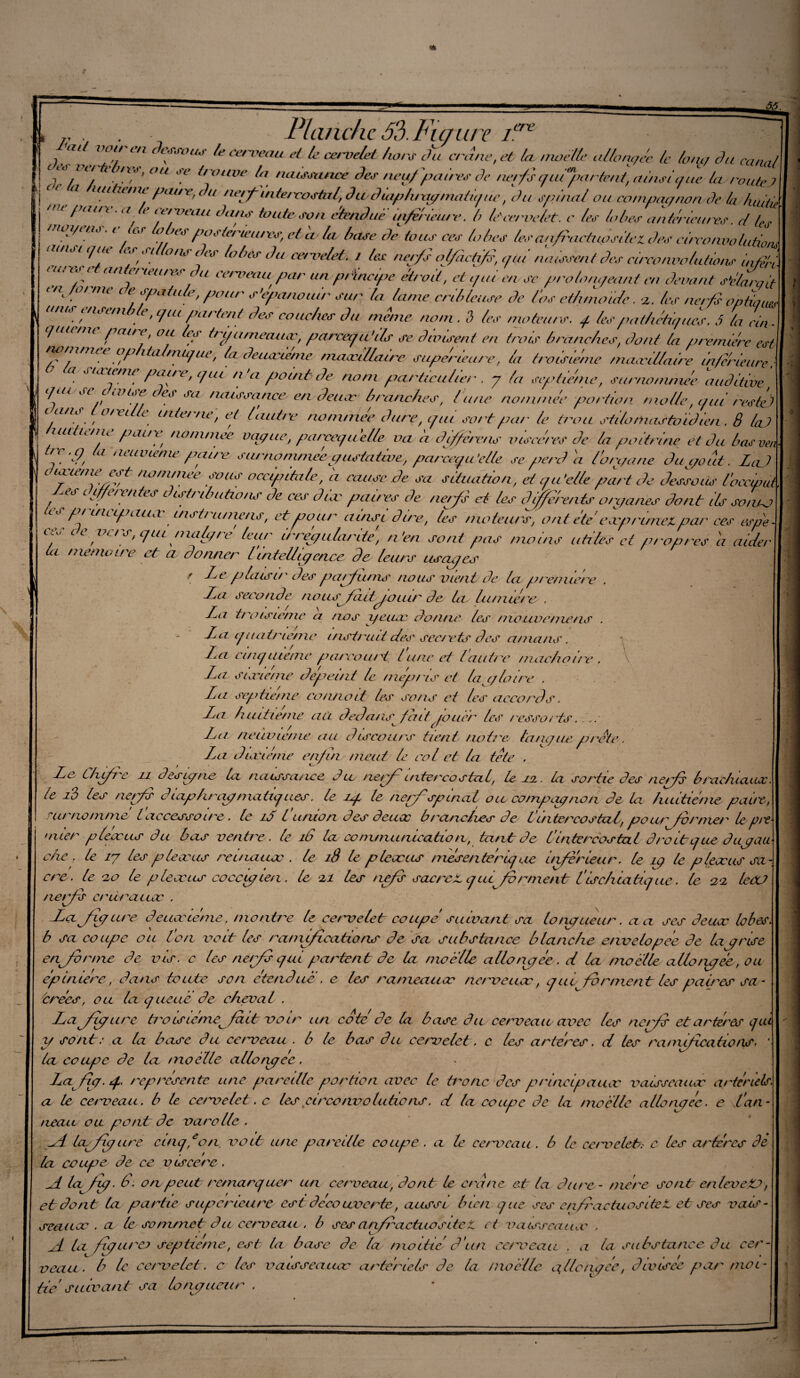 55.
Planche 53. Figure 1.ere
Fait voir en dessous le cerveau et le cervelet hors du crâne, et la moëlle allongée le long du canal
des vertebres, ou se trouve la naissance des neuf paires de nerfs qui partent, ainsi que la route
de la huitieme paire, du nerf intercostal, du diaphragmatique, du spinal ou compagnon de la huitie
me paire. a le cerveau dans toute son etenduë inférieure. b le cervelet. c les lobes antérieures. d les
moyens. e les lobes postérieures, et a la base de tous ces lobes les anfractuositez des circonvolutions
ainsi que les sillons des lobes du cervelet. 1 les nerfs olfactifs, qui naissent des circonvolutions inféri
eures et anterieures du cerveau par un principe étroit, et qui en se prolongeant en devant s'élargit
en forme de spatule, pour s'épanouir sur la lame cribleuse de l'os ethmoïde. 2. les nerfs optiques
unis ensemble, qui partent des couches du même nom. 3 les moteurs. 4 les pathétiques. 5 la cin-
quieme paire, ou les trijumeaux, parcequ'ils se divisent en trois branches, dont la première est
nommée ophtalmique, la deuxième maxillaire supérieure, la troisième maxillaire inférieure.
6 la sixieme paire, qui n'a point de nom particulier. 7 la septiéme, surnommée auditive,
qui se divise des sa naissance en deux branches, l'une nommée portion molle, qui reste
dans l'oreille interne, et l'autre nommée dure, qui sort par le trou stilomastoïdien. 8 la
huitieme paire nommée vague, parcequ'elle va a différens viscéres de la poitrine et du bas ven
tre. 9 la neuvième paire surnommée gustative, parcequ'elle se perd a l'organe du goût. La
dixieme est nommée sous occipitale, a cause de sa situation, et qu'elle part de dessous l'occiput
Les différentes distributions de ces dix paires de nerfs et les différents organes dont ils sont
les principaux instrumens, et pour ainsi dire, les moteurs, ont été exprimez par ces espè-
ces de vers, qui malgré leur irrégularité, n'en sont pas moins utiles et propres à aider
la memoire et a donner l'intelligence de leurs usages
Le plaisir des parfums nous vient de la premiére .
La seconde nous fait jouir de la lumiére .
La troisiéme a nos yeux donne les mouvemens .
La quatriéme instruit des secrets des amans .
La cinquiéme parcourt l'une et l'autre machoire .
La sixiéme dépeint le mépris et la gloire .
La septiéme connoit les sons et les accords .
La huitiéme au dedans fait jouer les ressorts. . .
La neuviéme au discours tient notre langue prête .
La dixiéme enfin meut le col et la tête .
Le Chifre 11 désigne la naissance du nerf intercostal, le 12. la sortie des nerfs brachiaux.
le 13 les nerfs diaphragmatiques. le 14. le nerf spinal ou compagnon de la huitiéme paire,
surnommé l'accessoire. le 15 l'union des deux branches de l'intercostal, pour former le pre-
mier plexus du bas ventre. le 16 la communication, tant de l'intercostal droit que du gau-
che. le 17 les plexus reinaux . le 18 le plexus mésentérique inférieur. le 19 le plexus sa-
cré. le 20 le plexus coccigien. le 21 les nefs sacrez qui forment l'ischiatique. le 22 les
nerfs cruraux .
La figure deuxiéme, montre le cervelet coupé suivant sa longueur. a a ses deux lobes.
b sa coupe où l'on voit les ramifications de sa substance blanche envelopée de la grise
en forme de vis. c les nerfs qui partent de la moëlle allongée. d la moëlle allongée, ou
épiniére, dans toute son étenduë. e les rameaux nerveux, qui forment les paires sa-
crées, ou la queuë de cheval .
La figure troisiéme fait voir un côté de la base du cerveau avec les nerfs et artéres qui
y sont : a la base du cerveau . b le bas du cervelet. c les artéres. d les ramifications.
la coupe de la moëlle allongée.
La fig. 4. représente une pareille portion avec le tronc des principaux vaisseaux artériels.
a le cerveau. b le cervelet. c les circonvolutions. d la coupe de la moëlle allongée. e l'an-
neau ou pont de varolle .
A la figure cinq,e on voit une pareille coupe. a le cerveau. b le cervelet. c les artéres de
la coupe de ce viscére .
A la fig. 6. on peut remarquer un cerveau, dont le crâne et la dure-mére sont enlevez,
et dont la partie supérieure est découverte, aussi bien que ses enfractuositez et ses vais-
seaux . a le sommet du cerveau, b ses anfractuositez et vaisseaux .
A la figure septiéme, est la base de la moitié d'un cerveau . a la substance du cer-
veau. b le cervelet. c les vaisseaux artériels de la moëlle allongée, divisée par moi-
tié suivant sa longueur .